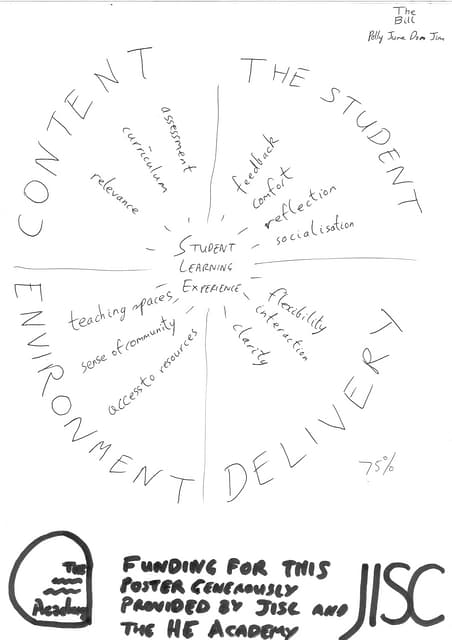 The
Bill
Polly June Dom Jim
CONTENT
THE STUDENT
assessment
curriculum
relevance
feedback
comfort
reflection
socialisation
STUDENT
LEARNING
EXPERIENCE
teaching spaces
sense of community
access to resources
flexibility
interaction
clarity
ENVIRONMENT
DELIVERY
75%
The
Academy
FUNDING FOR THIS
POSTER GENEROUSLY
PROVIDED BY JISC AND
THE HE ACADEMY
JISC